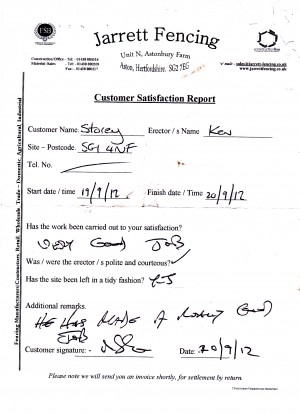 FSB
Jarrett Fencing
Unit N, Astonbury Farm
Aston, Hertfordshire. SG2 7EG
Construction/Office - Tel: - 01438 880314
Material Sales - Tel: - 01438 880880
Fax: - 01438 880317
e'mail - sales@jarrett-fencing.co.uk
www.jarrett-fencing.co.uk
Customer Satisfaction Report
Customer Name. Storey Erector / s Name Ken
Site – Postcode. SG1 4NF
Tel. No.
Start date / time 19/9/12 Finish date / Time 20/9/12
Has the work been carried out to your satisfaction?
VERY Good JOB
Was / were the erector / s polite and courteous?
Has the site been left in a tidy fashion? YES
Additional remarks.
HE HAS MADE A Good
JOB
Customer signature: - Date: 20/9/12
Please note we will send you an invoice shortly, for settlement by return.
Fencing Manufacturer/Contractors, Retail, Wholesale Trade – Domestic, Agricultural, Industrial